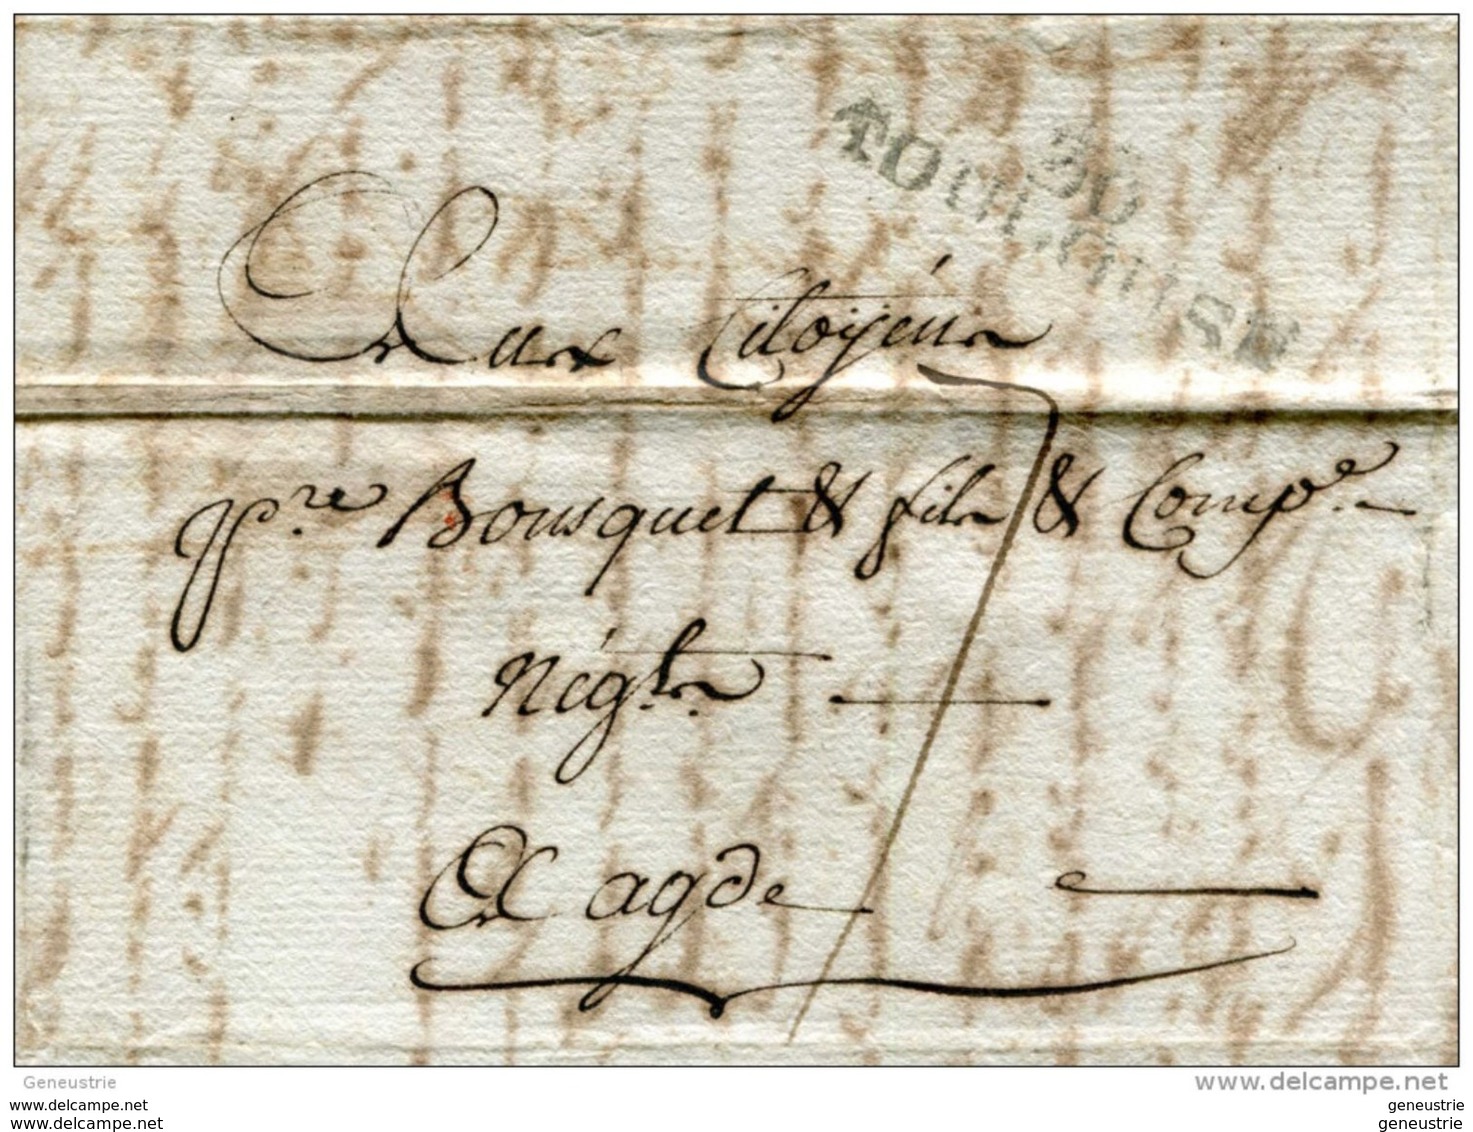 30
TOULOUSE
Aux Citoyéns
Pre Bousquet & fils & Compe
Négts
A agde
Geneustrie
www.delcampe.net
www.delcampe.net
www.delcampe.net
geneustrie
geneustrie